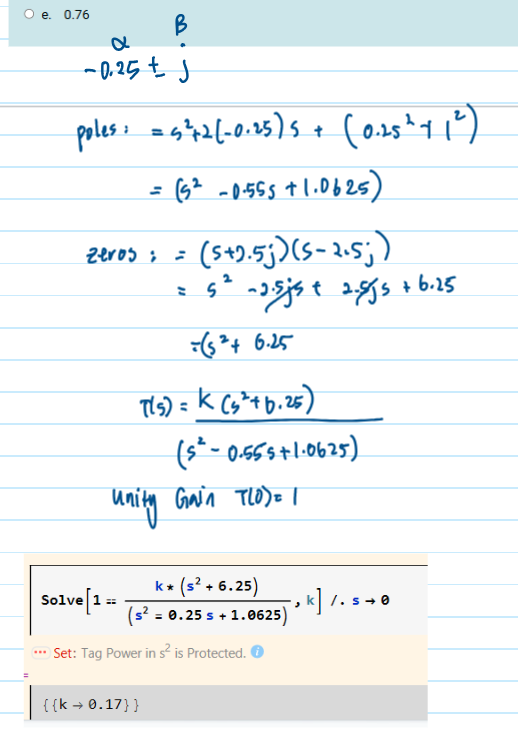 e. 0.76
α β
-0.25 ± j
poles: = s²+2(-0.25)s + (0.25²+1²)
= (s² -0.55s +1.0625)
zeros: = (s+2.5j)(s-2.5j)
= s² -2.5js + 2.5js + 6.25
=(s²+ 6.25
T(s) = k (s²+6.25)
(s² - 0.55s+1.0625)
unity Gain T(0)= 1
Solve[1 == k * (s² + 6.25)
(s² = 0.25 s + 1.0625) , k] /. s → 0
Set: Tag Power in s² is Protected.
=
{{k → 0.17}}